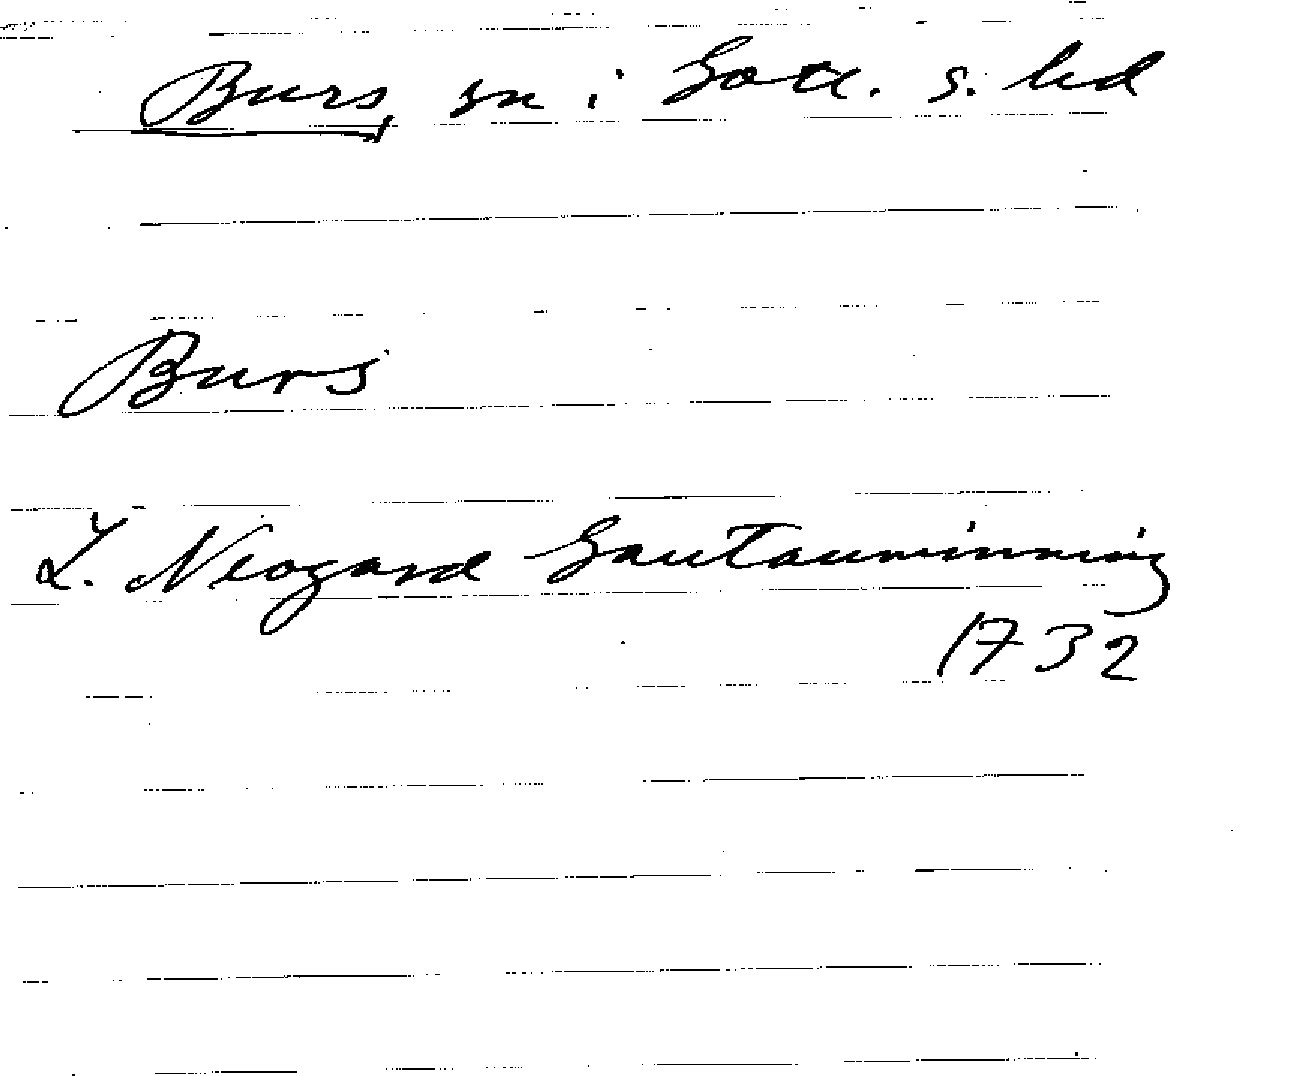 Burs sn i Gotl. s. hd
Burs
L. Neogard Gautauminning
1732